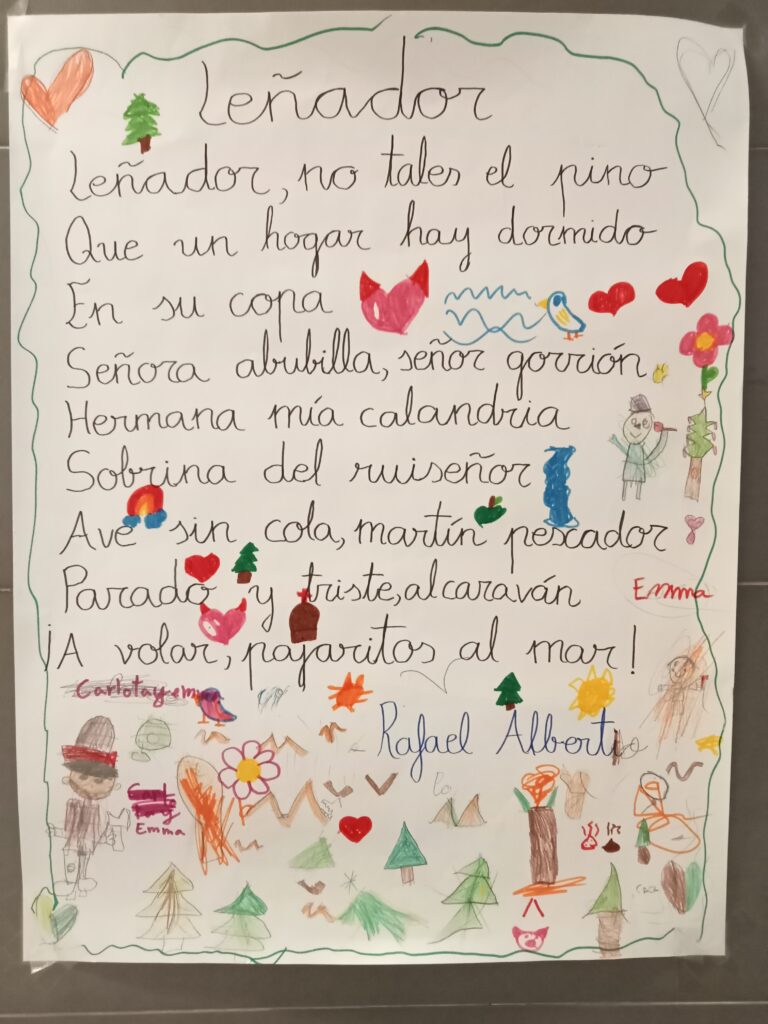 Leñador
Leñador, no tales el pino
Que un hogar hay dormido
En su copa
Señora abubilla, señor gorrión
Hermana mía calandria
Sobrina del ruiseñor
Ave sin cola, martín pescador
Parado y triste, alcaraván
Emma
¡A volar, pajaritos al mar!
Carlota y emma
Rafael Alberti
Emma
caca